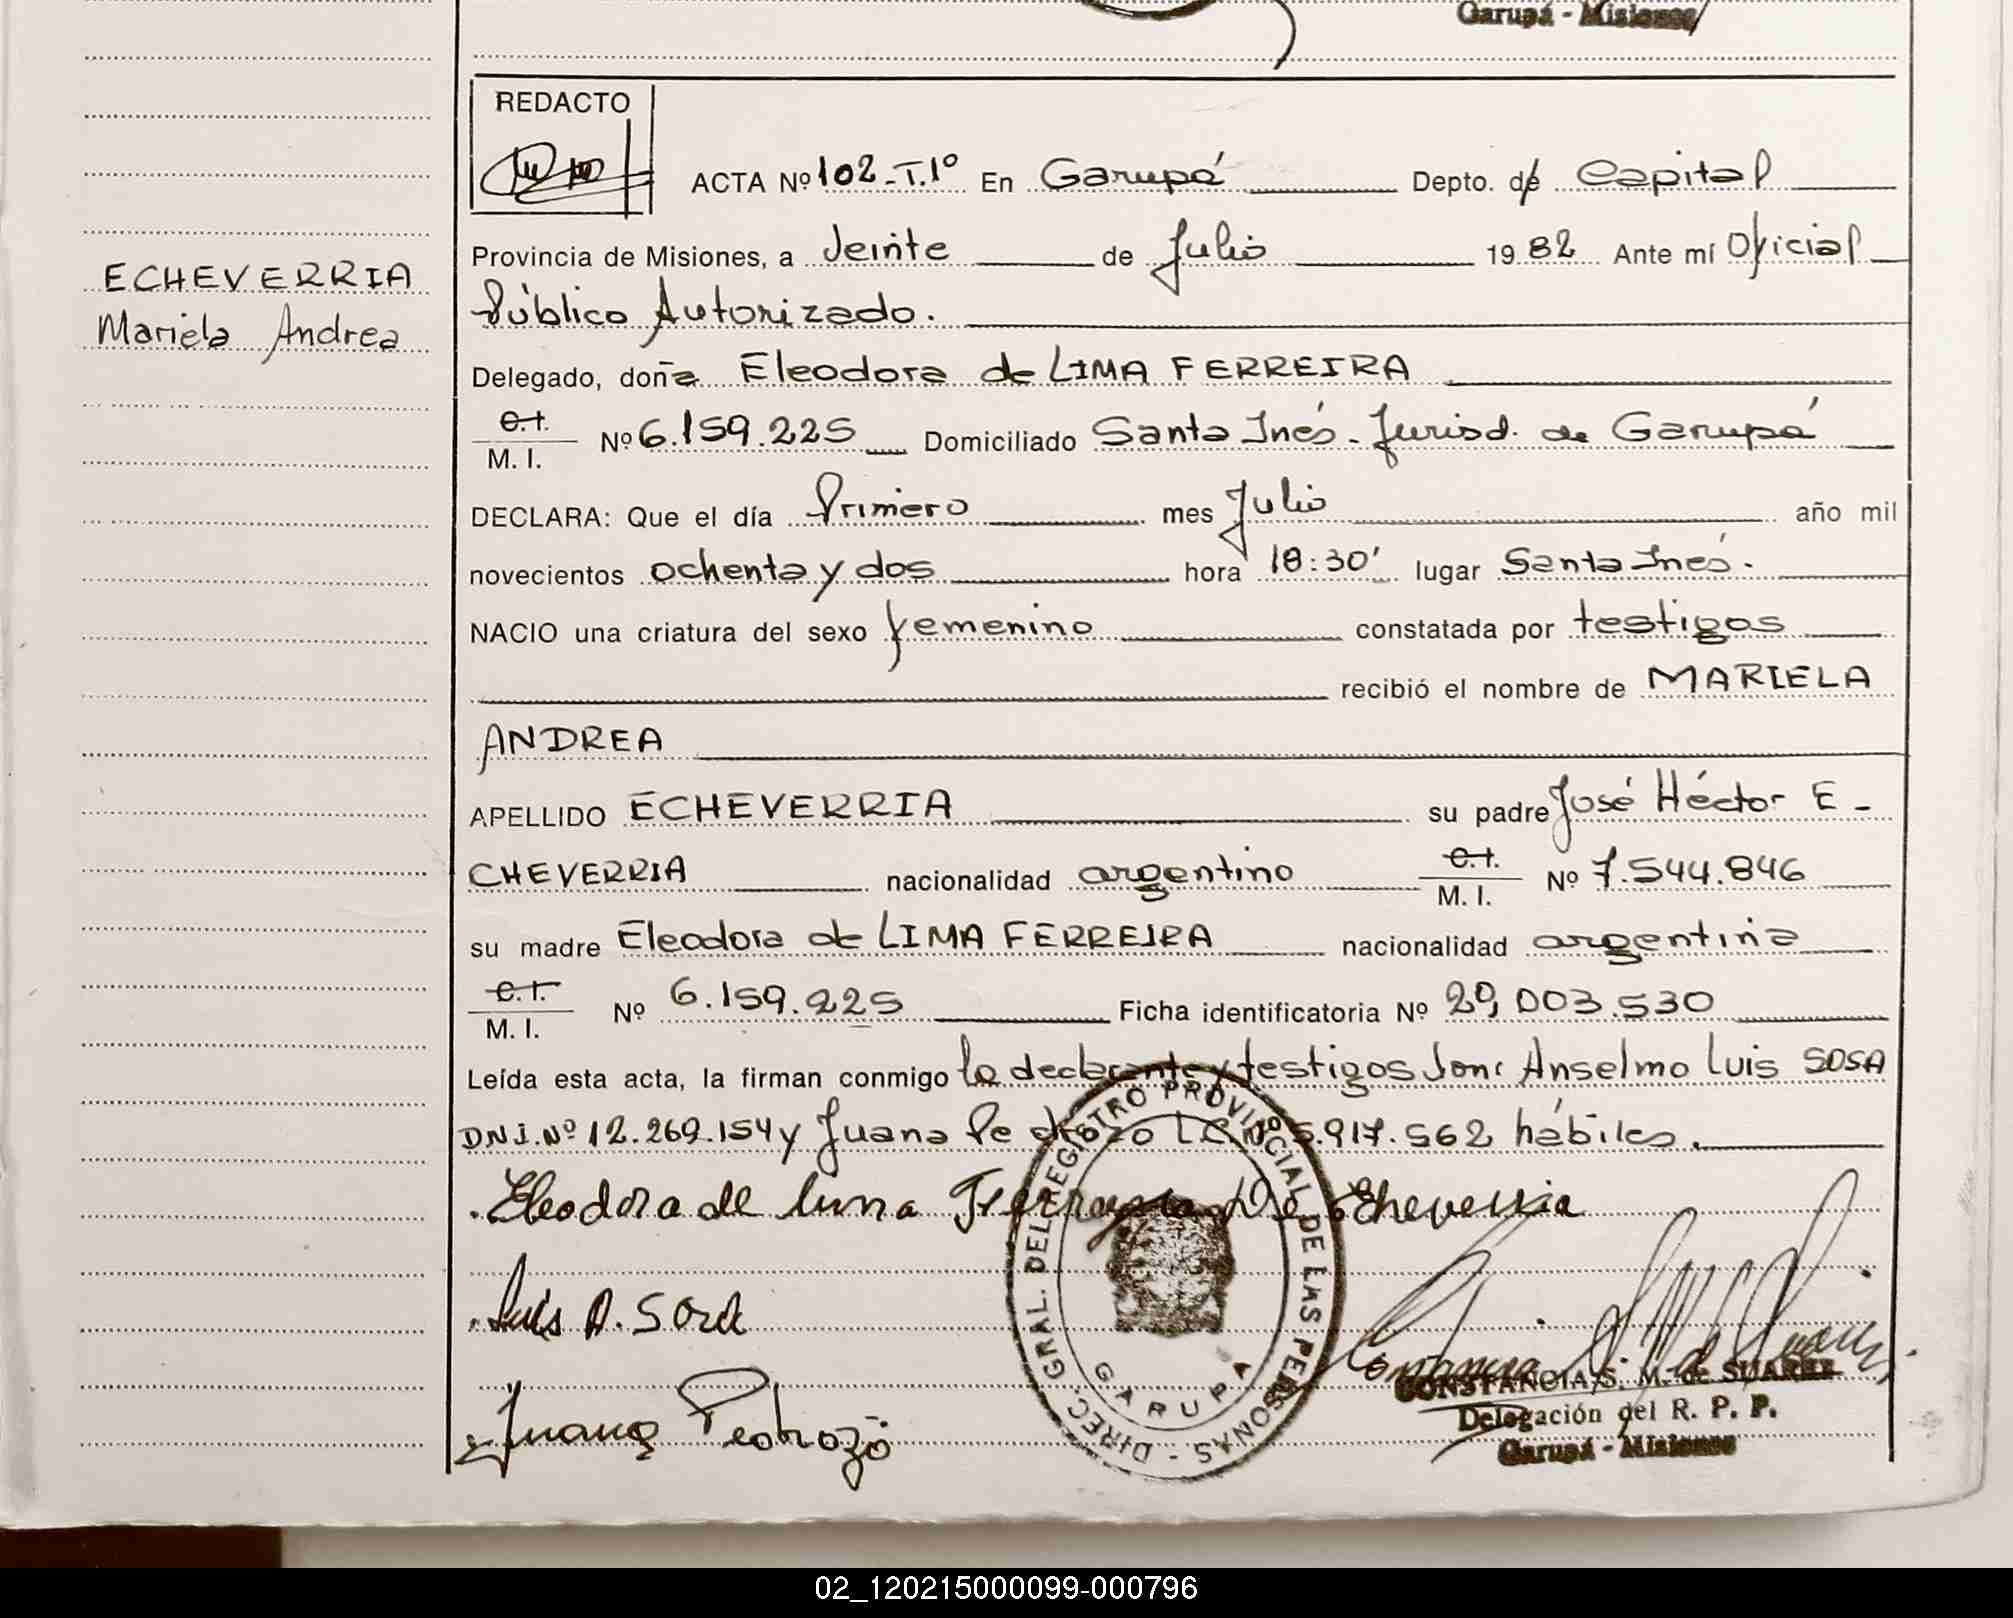 Garupá - Misiones
REDACTO
ACTA Nº 102-T.1º En Garupá Depto. de Capital
Provincia de Misiones, a Veinte de Julio 1982 Ante mí Oficial
Público Autorizado.
ECHEVERRIA
Mariela Andrea
Delegado, doña Eleodora de LIMA FERREIRA
C.I.
M. I. Nº 6.159.225 Domiciliado Santa Inés - Jurisd. de Garupá
DECLARA: Que el día Primero mes Julio año mil
novecientos ochenta y dos hora 18:30' lugar Santa Inés.
NACIO una criatura del sexo femenino constatada por testigos
recibió el nombre de MARIELA
ANDREA
APELLIDO ECHEVERRIA su padre José Héctor E-
CHEVERRIA nacionalidad argentino C.I. M. I. Nº 7.544.846
su madre Eleodora de LIMA FERREIRA nacionalidad argentina
C.I.
M. I. Nº 6.159.225 Ficha identificatoria Nº 29,003.530
Leída esta acta, la firman conmigo la declarante y testigos Anselmo Luis SOSA
DNI. Nº 12.269.154 y Juana Pedrozo 5.917.562 hábiles.
Eleodora de lima Ferreyra De Echeverria
Luis A. Sosa
Juana Pedrozo
DIREC. GRAL. DEL REGISTRO PROVINCIAL DE LAS PERSONAS -
GARUPA
CONSTANCIA S. M. de SUAREZ
Delegación del R. P. P.
Garupá - Misiones
02_120215000099-000796